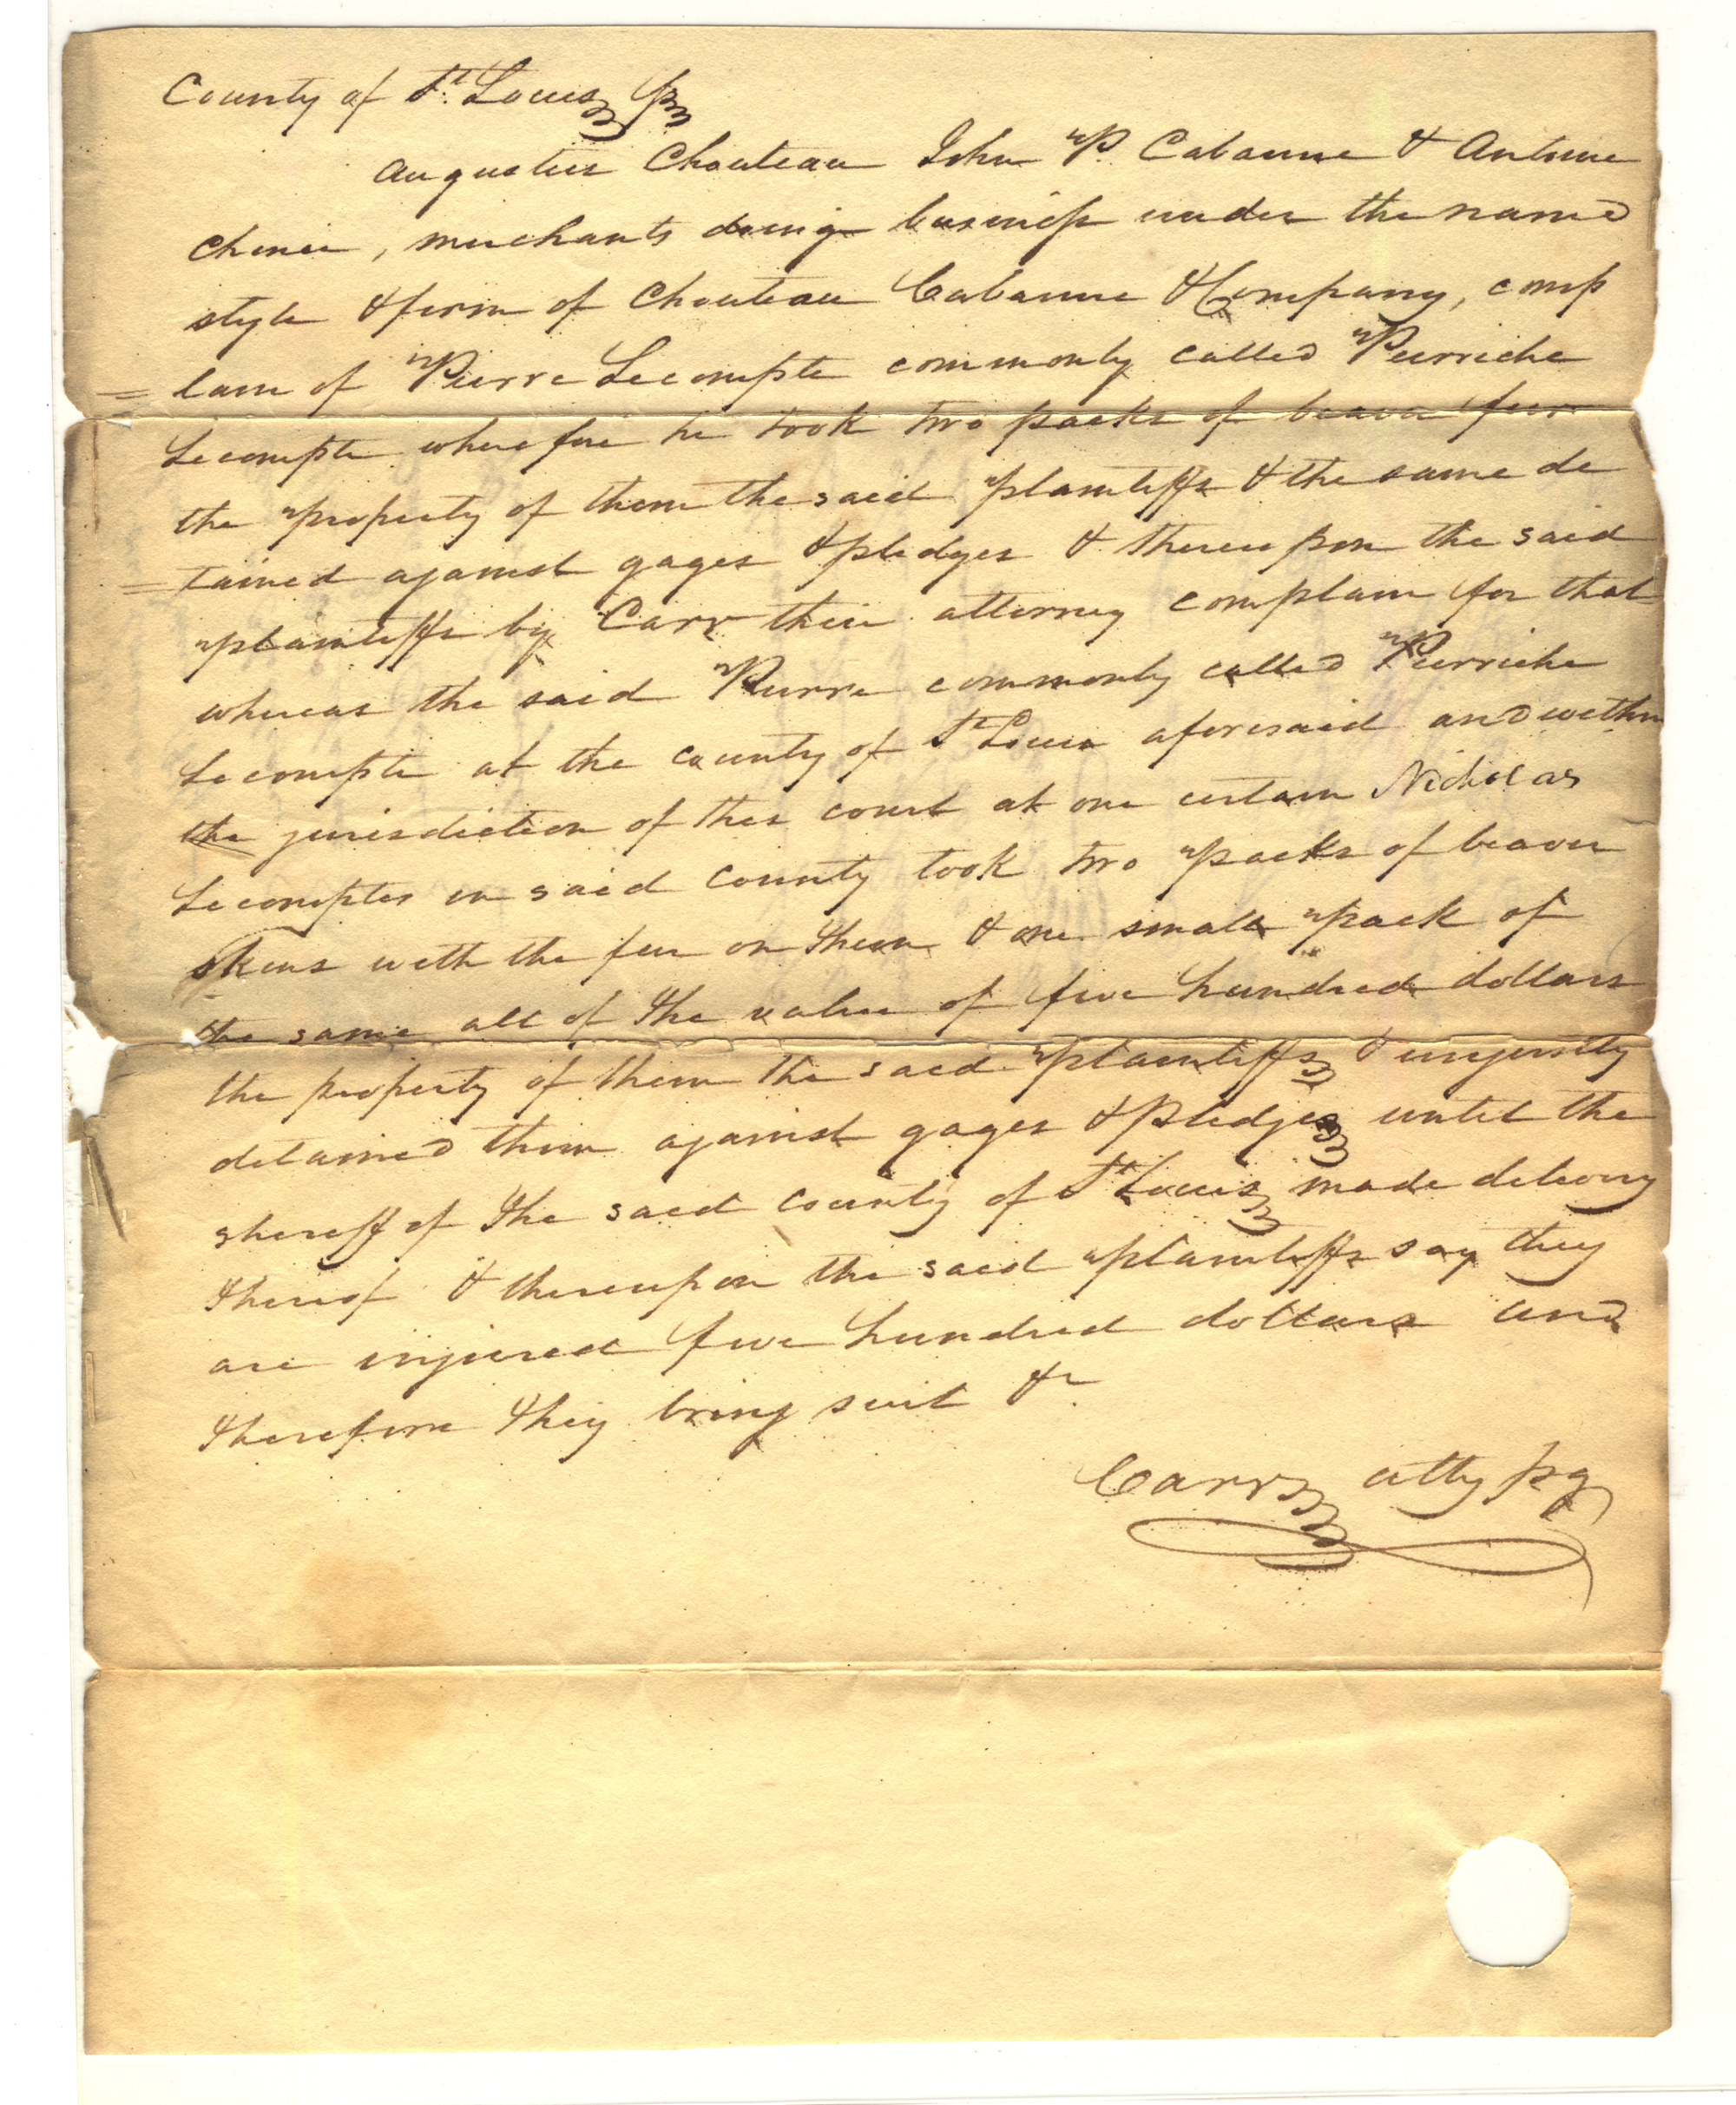 County of St. Louis ss
Augustus Chouteau John P. Cabanne & Antoine
Chenie, merchants doing business under the name
style & firm of Chouteau Cabanne & Company, comp
= lain of Pierre Lecompte commonly called Pierriche
Lecompte wherefore he took two packs of beaver fur
the property of them the said plaintiffs & the same de
= tained against gages & pledges & thereupon the said
plaintiffs by Carr their attorney complain for that
whereas the said Pierre commonly called Pierriche
Lecompte at the county of St Louis aforesaid and within
the jurisdiction of this court at one certain Nicholas
Lecomptes in said county took two packs of beaver
skins with the fur on them & one small pack of
the same all of the value of five hundred dollars
the property of them the said plaintiffs & unjustly
detained them against gages & pledges until the
sheriff of the said county of St Louis made delivery
thereof & thereupon the said plaintiffs say they
are injured five hundred dollars and
therefore they bring suit &c.
Carr atty pq